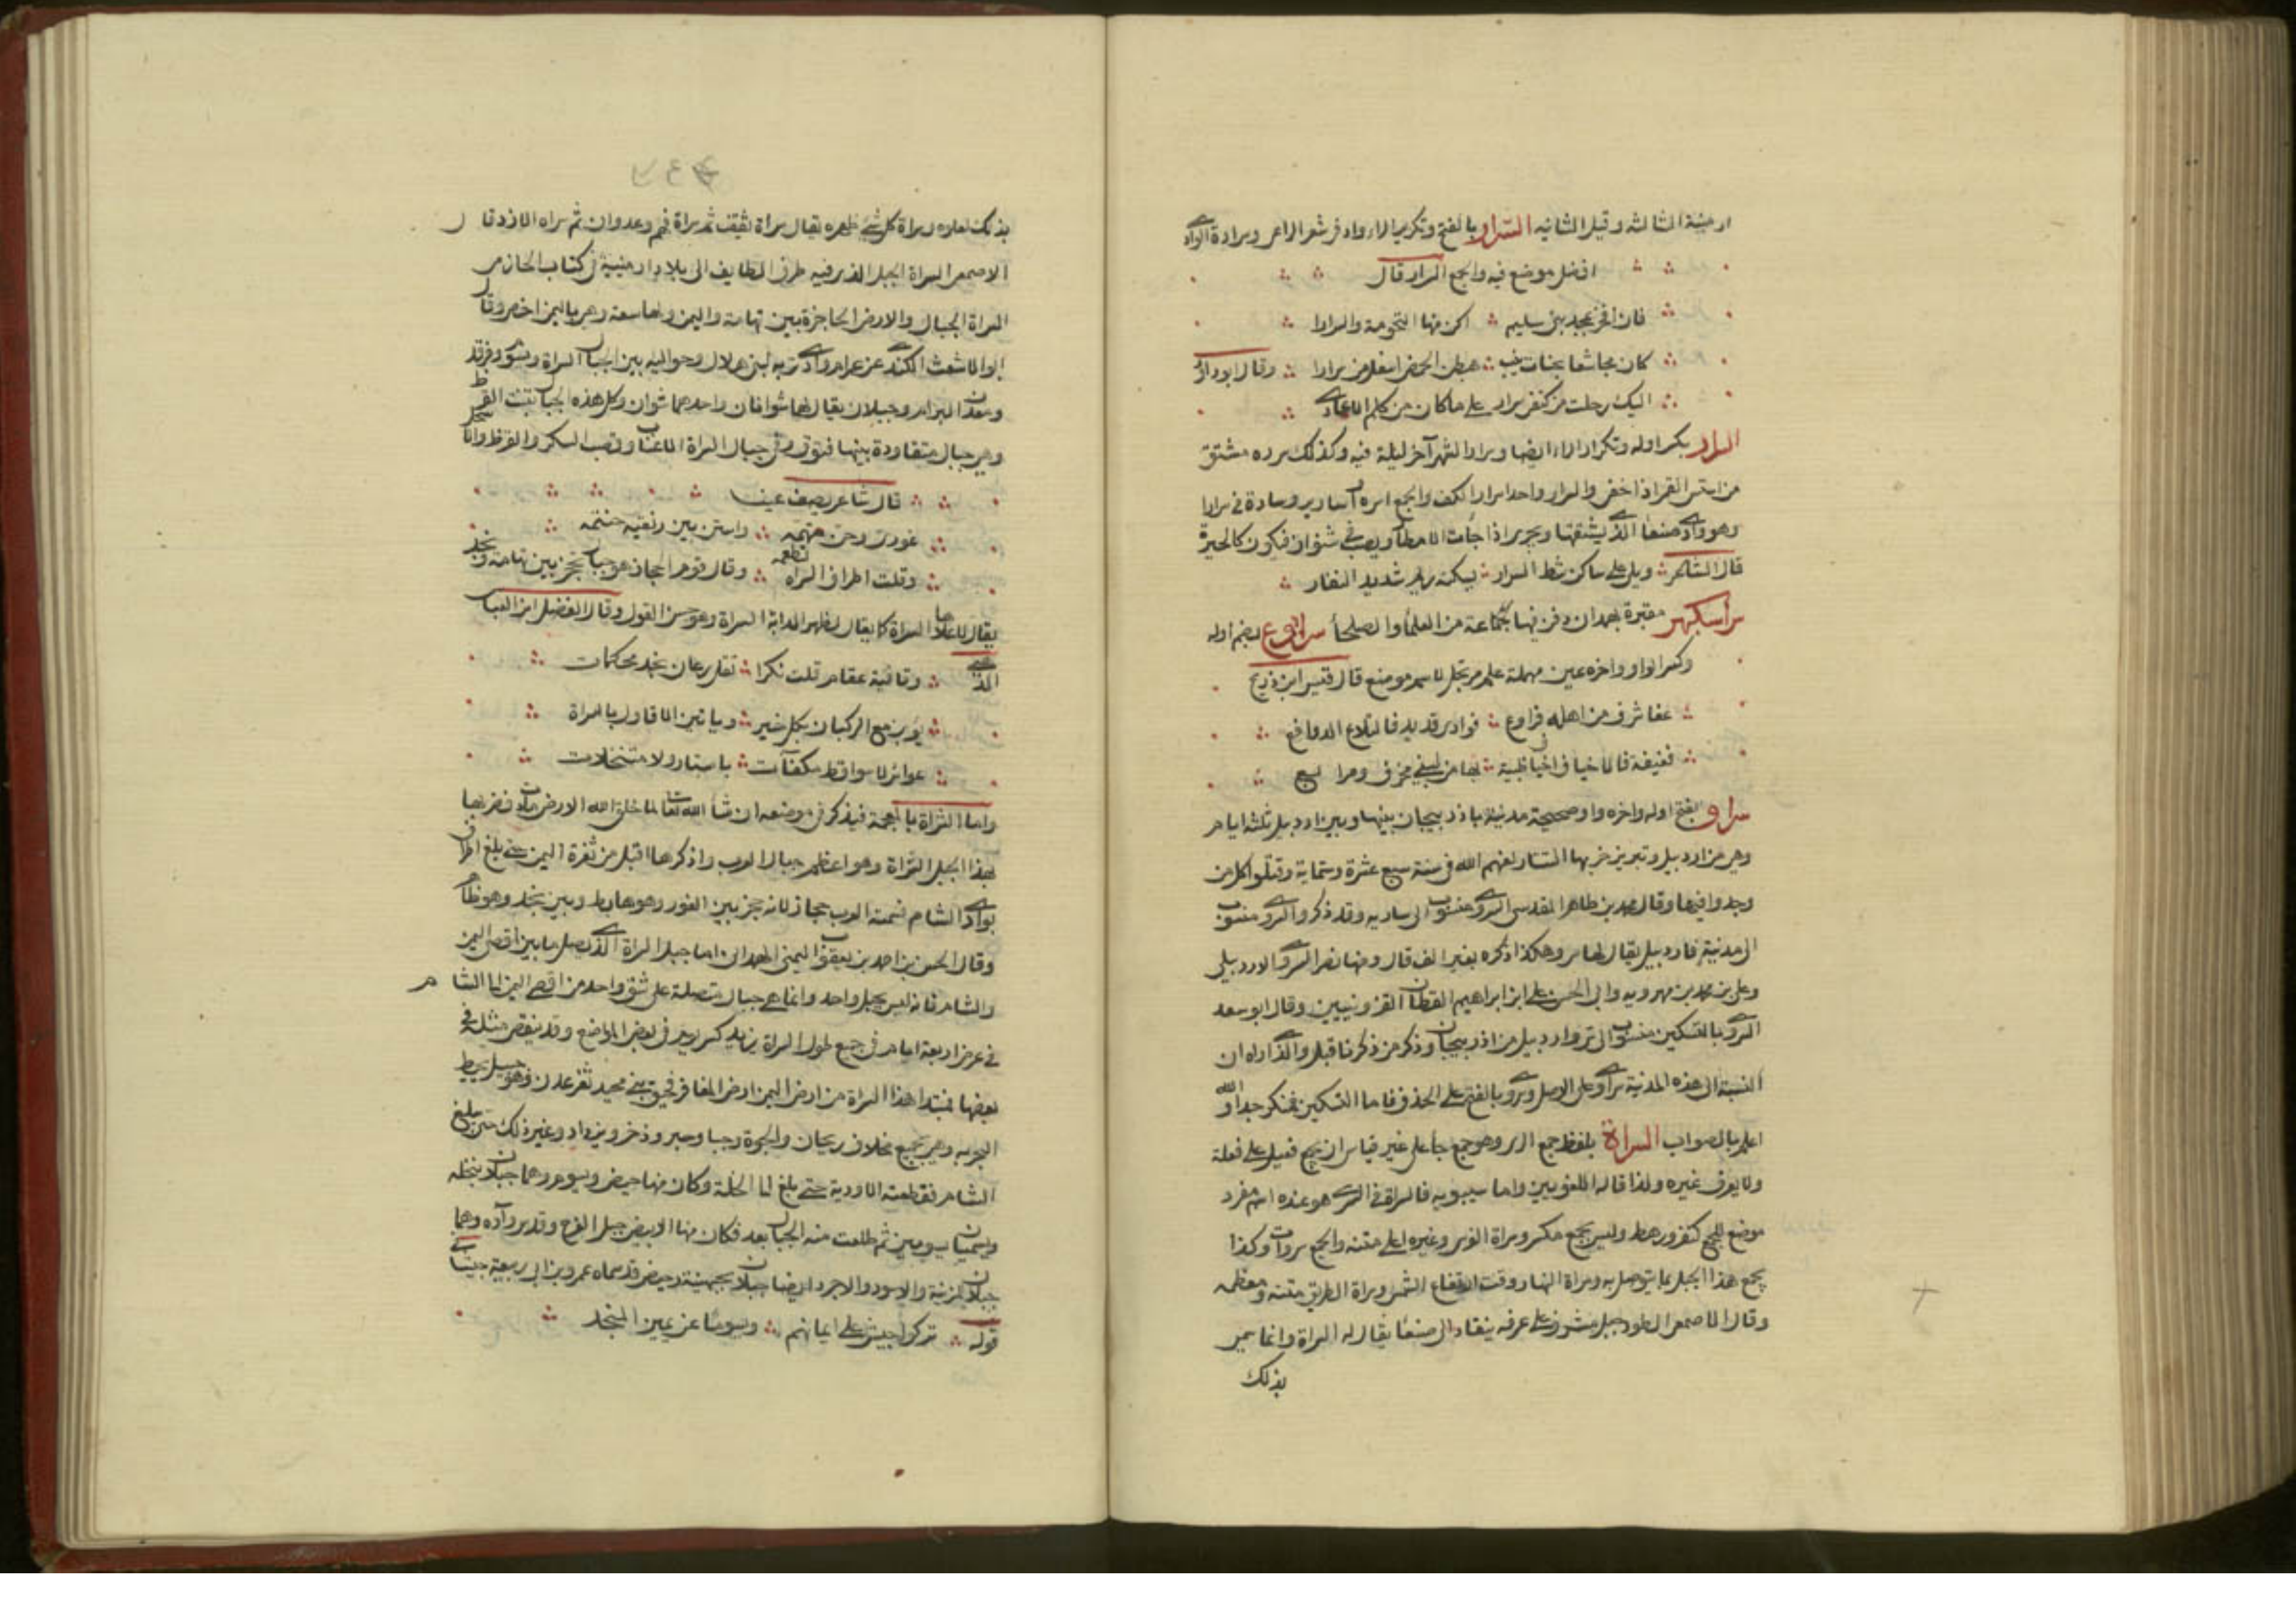 ارمنية الثالثة وقيل الثانيه السرار بالفتح وتكرير الراء واد فى شعر الراعى وسرارة الوادى
افضل موضع فيه والجمع السرار قال
فان افخر بمجد بنى سليم اكن منها التخومة والسرارا
كان مجاشعا هبطن الحمض اسفل من سرارا وقال ابو دواد
اليك رحلت من كنفى سرار على ما كان من كلم الاعادى
السرار بكسر اوله وتكرار الراء ايضا وسرار الشهر آخر ليلة فيه وكذلك سرره مشتق
من استسر القمر اذا خفى والسرار واحد اسرار الكف والجمع اسرة اسارير وسادة فى سرارا
وهو وادى صنعا الذى يشتقها ويجرى اذا جات الامطار ويصب فى شنوان فيكون كالحيرة
قال الشاعر ويلى على ساكن شط السرار يسكنه ريم شديد النفار
سراسكبهر مقبرة بهمدان دفن فيها جماعة من العلما والصلحا سراوع بضم اوله
وكسر الواو واخره عين مهملة علم مرتجل لاسم موضع قال قيس ابن ذريح
عفا سرف من اهله فراوع فوادى قديد فالتلاع الدوافع
فغيقة فالاخياف اخياف ظبية بها من لبينى مخرف ومرابع
سراو بفتح اوله واخره واو صحيحة مدينة باذربيجان بينها وبين اردبيل ثلثة ايام
وهى من اردبيل وتبريز خربها التتار لعنهم الله فى سنة سبع عشرة وستماية وقتلوا كل من
وجدوا فيها وقال محمد بن طاهر المقدسى السروى منسوب الى ساريه وقد ذكر والسروى منسوب
الى مدينة فاردبيل يقال لها سرو هكذا ذكره بغير الف قال ومنها نصر السروى الاردبيلى
وعلى بن محمد بن مهرويه وابى الحسن على ابن ابراهيم القطان القزوينيين وقال ابو سعد
السروى بالتسكين منسوب الى سرو اردبيل من اذربيجان وذكر من ذكرنا قبل والذى اراه ان
النسبة الى هذه المدينة سراوى على الاصل وسروى بالفتح على الحذف فاما التسكين فمنكر جدا والله
اعلم بالصواب السراة بلفظ جمع السرى وهو جمع جا على غير قياس ان يجمع فعيل على فعلة
ولا يعرف غيره ولذا قاله اللغويين واما سيبويه فالسراة فى السرى هو عنده اسم مفرد
موضع للجمع كنفر ورهط وليس بجمع مكسر وسراة الفرس وغيره اعلى متنه والجمع سروات وكذا
يجمع هذا الجبل بما يتوصل به وسراة النهار وقت ارتفاع الشمس وسراة الطريق متنه ومعظمه
وقال الاصمعى الطود جبل مشرف على عرفه ينقاد الى صنعا يقال له السراة وانما سمى
بذلك
بذلك لعلوه وسراة كل شى ظهره يقال سراة ثقيف ثم سراة فهم وعدوان ثم سراة الازد وقال
الاصمعى السراة الجبل الذى فيه طرف الطايف الى بلاد ارمنية فى كتاب الحازمى
السراة الجبال والارض الحاجزة بين تهامة واليمن ولها سعة وهى باليمن اخص وقال
ابو الاشعث الكندى عن عرام وادى تربه لبنى هلال وحواليه بين الجبال السراة ويسوم وفرقد
ومعدن البرام وجبلان يقال لهما شوانان واحدهما شوان وكل هذه الجبال تنبت القرظ
وهى جبال متقاودة بينها فتوق وفى جبال السراة الاعناب وقصب السكر والقرظ والاسحل
قال شاعر يصف
عورى وحى متهمه واستن بين ريقيه حنتمه
وقلت اطراف السراة تطعمه وقال قوم الحجاز هو جبال تحجز بين تهامة ونجد
يقال لاعلاها السراة كما يقال لظهر الدابة السراة وهو حسن القول وقال الفضل ابن العباس
وقافية عقام قلت بكرا تقل رعان نجد محكمات
يؤبن مع الركبان بكل خير ويأتين الاقاول بالسراة
عوائر لا سواقط مكفآت باسناد ولا متنخلات
واما الشراة بالمعجمة فيذكر فى موضعه ان شا الله تعالى لما خلق الله الارض مادت فضربها
بهذا الجبل السراة وهو اعظم جبال العرب واذكرها اقبل من ثغرة اليمن حتى بلغ اطراف
بوادى الشام فسمته العرب حجاز لانه حجز بين الغور وهو هابط وبين نجد وهو ظاهر
وقال الحسن بن احمد بن يعقوب اليمنى الهمدانى اما جبل السراة الذى يصل ما بين اقصى اليمن
والشام فانه ليس بجبل واحد وانما هى جبال متصلة على شق واحد من اقصى اليمن الى الشام
فى عرض اربعة ايام فى جميع طول السراة يزيد كسر يوم فى بعض المواضع وقد ينقص مثله فى
بعضها فمبتدا هذا السراة من ارض اليمن ارض المعافر فحيق بنى مجيد ثغر عدن وهو جبل يحيط
البحر به وهى تجمع مخلاف ريحان والجوة وجبا وصبر وذخر ويزداد وغير ذلك حتى بلغ
الشام فقطعته الاودية حتى بلغ الى النخلة وكان منها حيض ويسوم وهما جبلان بنخله
ويسميان يسومين ثم طلعت منه الجبال بعد فكان منها الابيض جبل العرج وقدس وآره وهما
جبلان لمزينة والاسود والاجرد ايضا جبلان بجهينة وحيض قد سماه عمرو بن ابى ربيعة حيشا فى
قوله تركوا حيشا على ايمانهم ويسوما عن يمين المنجد